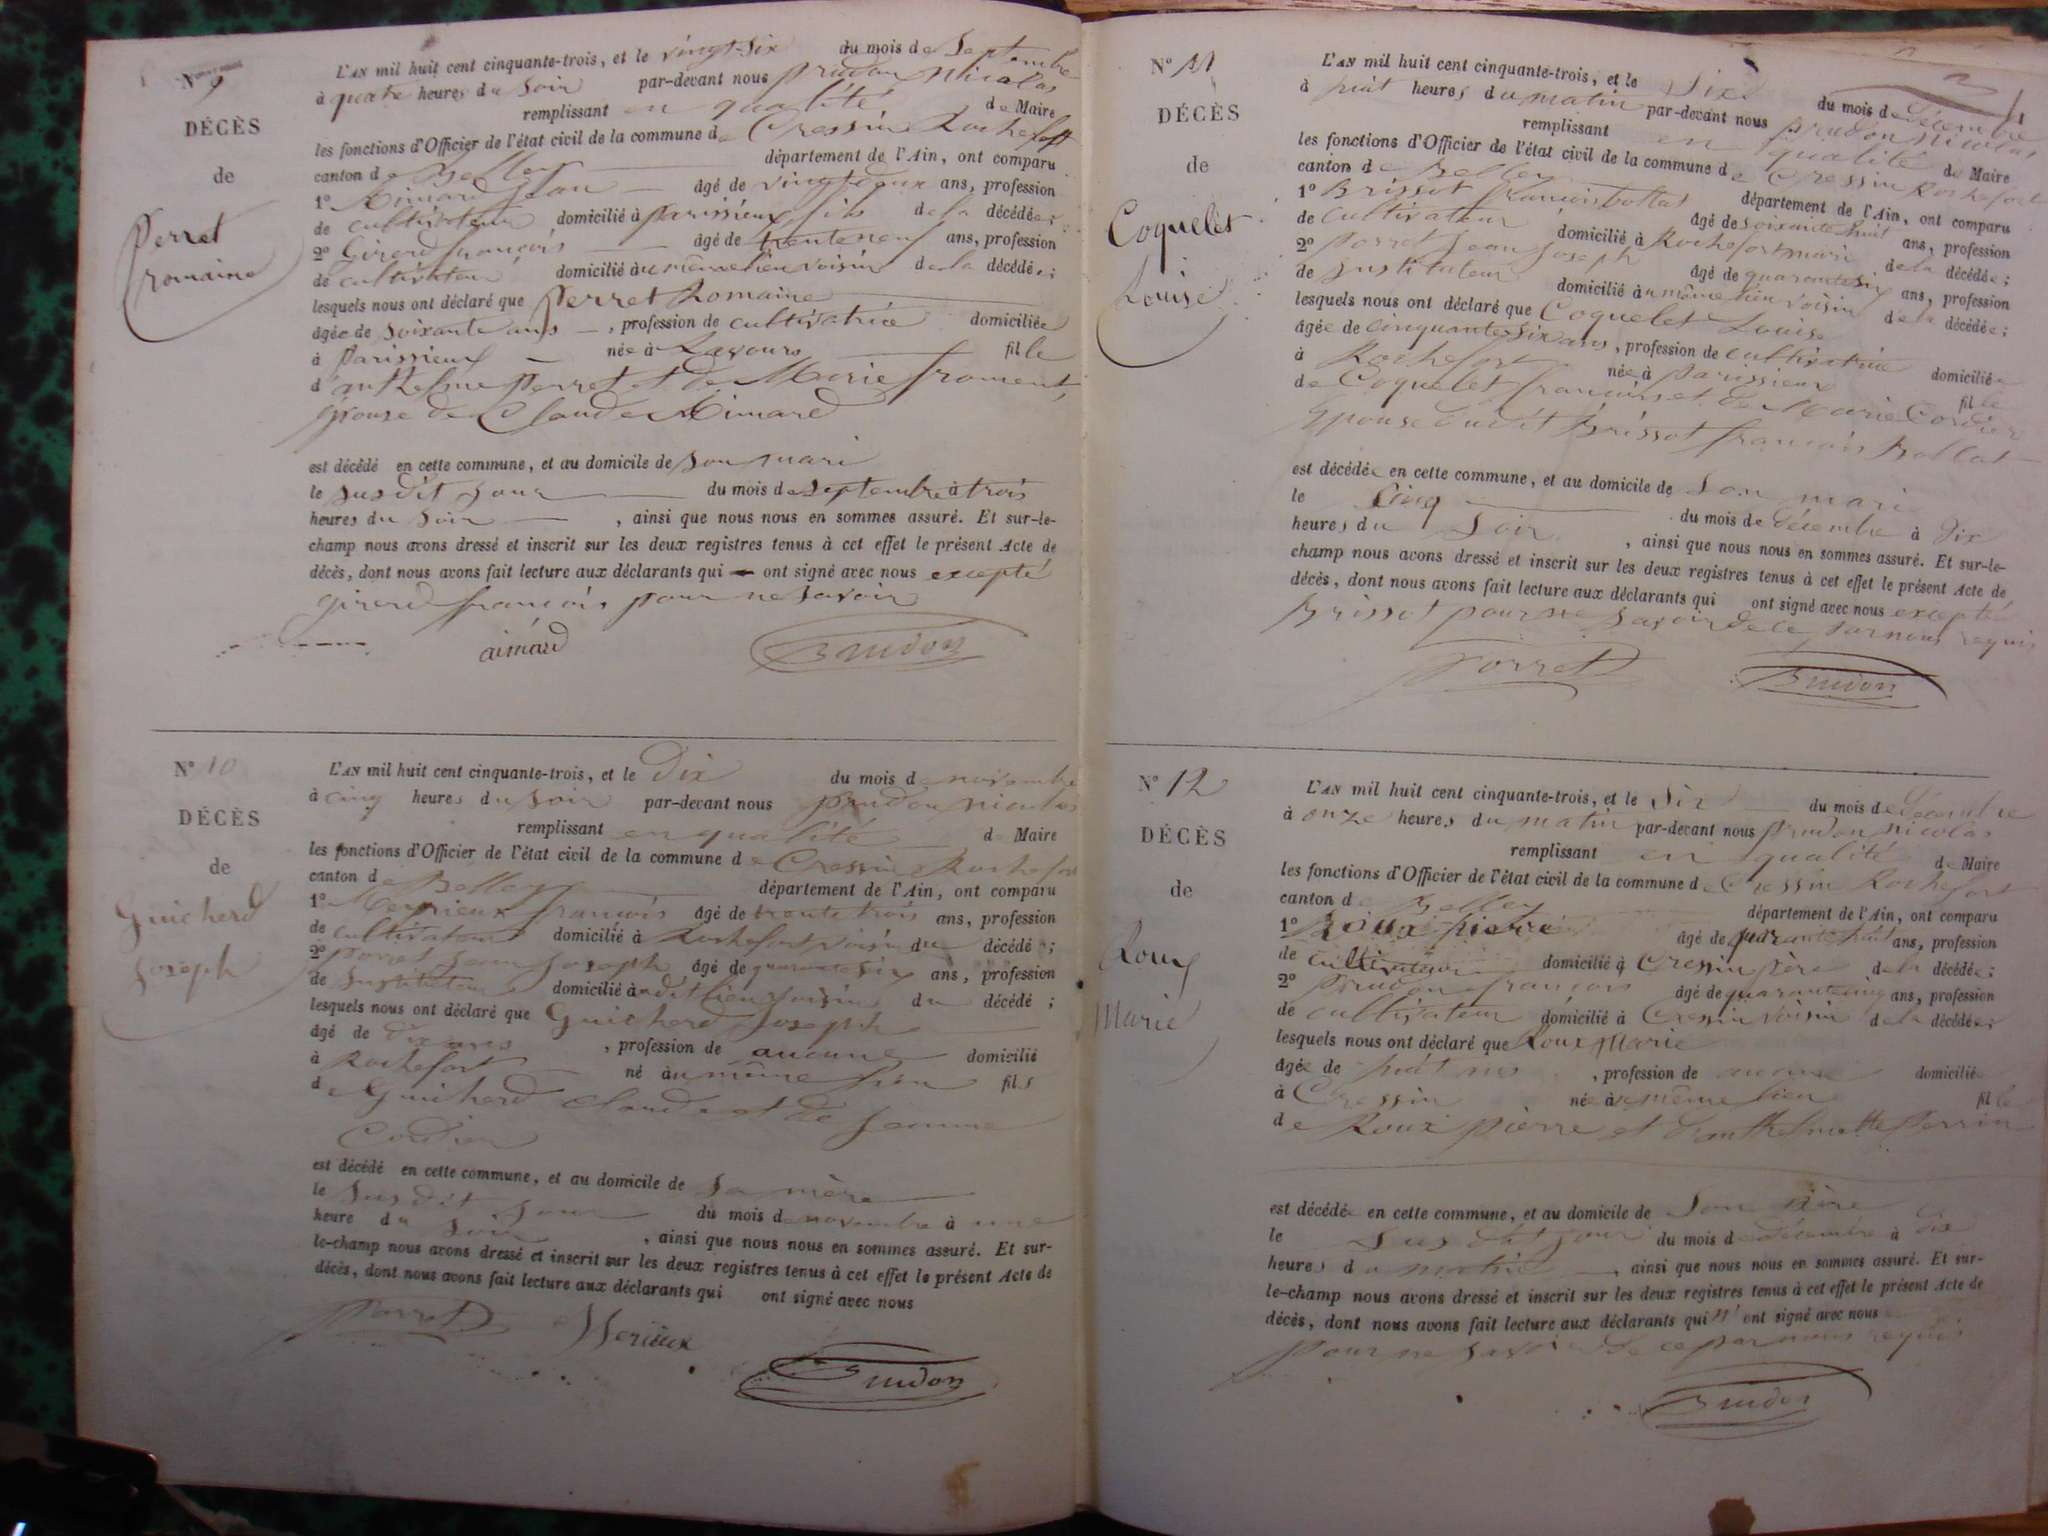 N° 9
DÉCÈS
de
Perret
romaine
L'AN mil huit cent cinquante-trois, et le vingt-six du mois de Septembre
à quatre heures du Soir par-devant nous prudon nicolas
remplissant en qualité de Maire
les fonctions d'Officier de l'état civil de la commune de Cressin Rochefort
canton de Belley département de l'Ain, ont comparu
1° Aimard Jean âgé de vingt deux ans, profession
de cultivateur domicilié à parissieux fils de la décédée;
2° Girerd françois âgé de trente neuf ans, profession
de cultivateur domicilié au même lieu voisin de la décédée;
lesquels nous ont déclaré que Perret Romaine
âgée de Soixante ans, profession de cultivatrice domiciliée
à parissieux née à Lavours fille
d'anthelme perret et de Marie froment,
épouse de Claude Aimard
est décédé en cette commune, et au domicile de son mari
le susdit jour du mois de septembre à trois
heures du Soir, ainsi que nous nous en sommes assuré. Et sur-le-
champ nous avons dressé et inscrit sur les deux registres tenus à cet effet le présent Acte de
décès, dont nous avons fait lecture aux déclarants qui ont signé avec nous excepté
girerd françois pour ne savoir
aimard Prudon
N° 10
DÉCÈS
de
Guicherd
Joseph
L'AN mil huit cent cinquante-trois, et le Dix du mois de novembre
à cinq heures du Soir par-devant nous prudon nicolas
remplissant en qualité de Maire
les fonctions d'Officier de l'état civil de la commune de Cressin Rochefort
canton de Belley département de l'Ain, ont comparu
1° Meyrieux françois âgé de trente trois ans, profession
de cultivateur domicilié à Rochefort voisin du décédé;
2° porret Jean Joseph âgé de quarante six ans, profession
de Instituteur domicilié audit lieu voisin du décédé;
lesquels nous ont déclaré que Guicherd Joseph
âgé de dix ans, profession de aucune domicilié
à Rochefort né au même lieu fils
de Guicherd Claude et de Jeanne
Cordier
est décédé en cette commune, et au domicile de sa mère
le susdit jour du mois de novembre à une
heure du soir, ainsi que nous nous en sommes assuré. Et sur-
le-champ nous avons dressé et inscrit sur les deux registres tenus à cet effet le présent Acte de
décès, dont nous avons fait lecture aux déclarants qui ont signé avec nous
porret Merieux
Prudon
N° 11
DÉCÈS
de
Coquelet
Louise
L'AN mil huit cent cinquante-trois, et le Six du mois de décembre
à huit heures du matin par-devant nous prudon nicolas
remplissant en qualité de Maire
les fonctions d'Officier de l'état civil de la commune de Cressin Rochefort
canton de Belley département de l'Ain, ont comparu
1° Brissot françois ballat âgé de soixante huit ans, profession
de cultivateur domicilié à Rochefort mari de la décédée;
2° porret Jean Joseph âgé de quarante six ans, profession
de Instituteur domicilié au même lieu voisin de la décédée;
lesquels nous ont déclaré que Coquelet Louise
âgée de cinquante six ans, profession de cultivatrice domiciliée
à Rochefort née à parissieux fille
de Coquelet françois et de Marie Cordier
Epouse dudit Brissot françois ballat
est décédée en cette commune, et au domicile de son mari
le Cinq du mois de décembre à dix
heures du Soir, ainsi que nous nous en sommes assuré. Et sur-le-
champ nous avons dressé et inscrit sur les deux registres tenus à cet effet le présent Acte de
décès, dont nous avons fait lecture aux déclarants qui ont signé avec nous excepté
Brissot pour ne savoir de ce par nous requis
porret Prudon
N° 12
DÉCÈS
de
Roux
Marie
L'AN mil huit cent cinquante-trois, et le Six du mois de décembre
à onze heures du matin par-devant nous prudon nicolas
remplissant en qualité de Maire
les fonctions d'Officier de l'état civil de la commune de Cressin Rochefort
canton de Belley département de l'Ain, ont comparu
1° Roux pierre âgé de quarante huit ans, profession
de cultivateur domicilié à Cressin père de la décédée;
2° prudon françois âgé de quarante cinq ans, profession
de cultivateur domicilié à Cressin voisin de la décédée;
lesquels nous ont déclaré que Roux Marie
âgée de huit ans, profession de aucune domiciliée
à Cressin née au même lieu fille
de Roux pierre et d'anthelmette perrin
est décédée en cette commune, et au domicile de son père
le Susdit jour du mois de décembre à dix
heures du matin, ainsi que nous nous en sommes assuré. Et sur-
le-champ nous avons dressé et inscrit sur les deux registres tenus à cet effet le présent Acte de
décès, dont nous avons fait lecture aux déclarants qui n'ont signé avec nous
pour ne savoir de ce par nous requis
Prudon